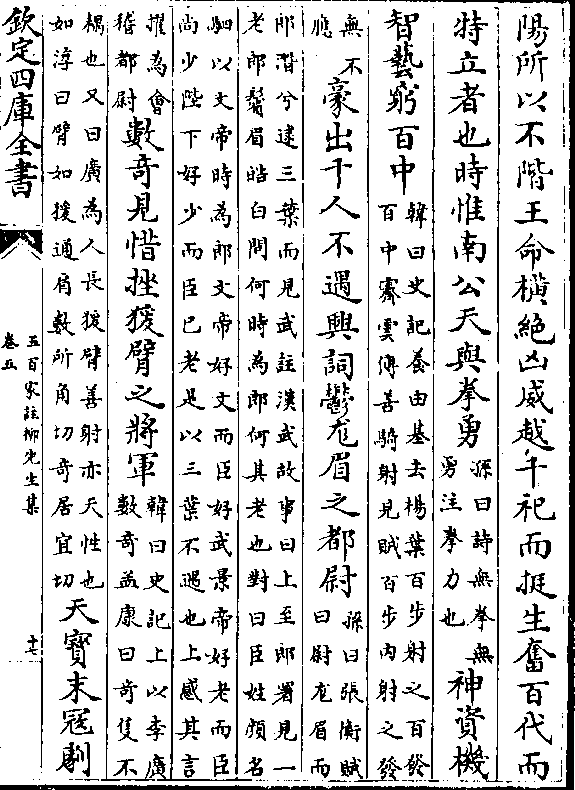 陽所以不階王命橫絕凶威越千祀而挺生奮百代而
特立者也時惟南公天與拳勇孫曰詩無拳無勇注拳力也神資機
智藝窮百中韓曰史記養由基去楊葉百步射之百發百中霽雲傳善騎射見賊百步内射之發
無不應豪出千人不遇興詞鬱尨眉之都尉孫曰張衡賦曰尉尨眉而
郎潛兮逮三葉而見武註漢武故事曰上至郎署見一
老郎鬢眉皓白問何時為郎何其老也對曰臣姓顔名
駟以文帝時為郎文帝好文而臣好武景帝好老而臣
尚少陛下好少而臣已老是以三葉不遇也上感其言
擢為會稽都尉數奇見惜挫猨臂之將軍韓曰史記上以李廣數奇孟康曰奇隻不
耦也又曰廣為人長猨臂善射亦天性也
如淳曰臂如猨通肩數所角切奇居宜切天寶末冦劇
欽定四庫全書
五百家註柳先生集
卷五
十七